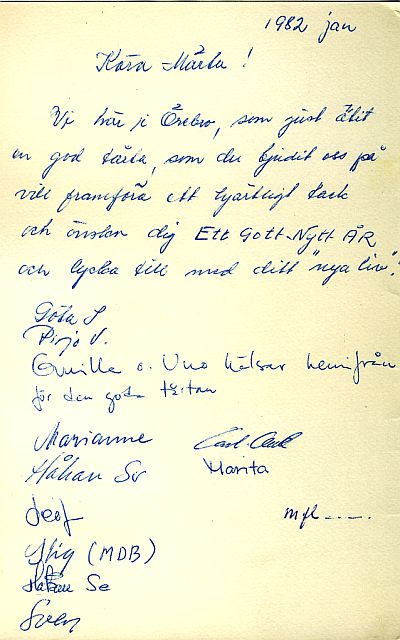 1982 jan
Kära Märta!
Vi här i Örebro, som just ätit
en god tårta, som du bjudit oss på
vill framföra ett hjärtligt tack
och önskar dig ETT GOTT NYTT ÅR
och lycka till med ditt "nya liv".
Göta S
Pirjo V.
Gunilla o. Uno hälsar hemifrån
för den goda tårtan
Marianne
Håkan Sv Marita
Leif mfl ----.
Stig (MDB)
Håkan Se
Sven